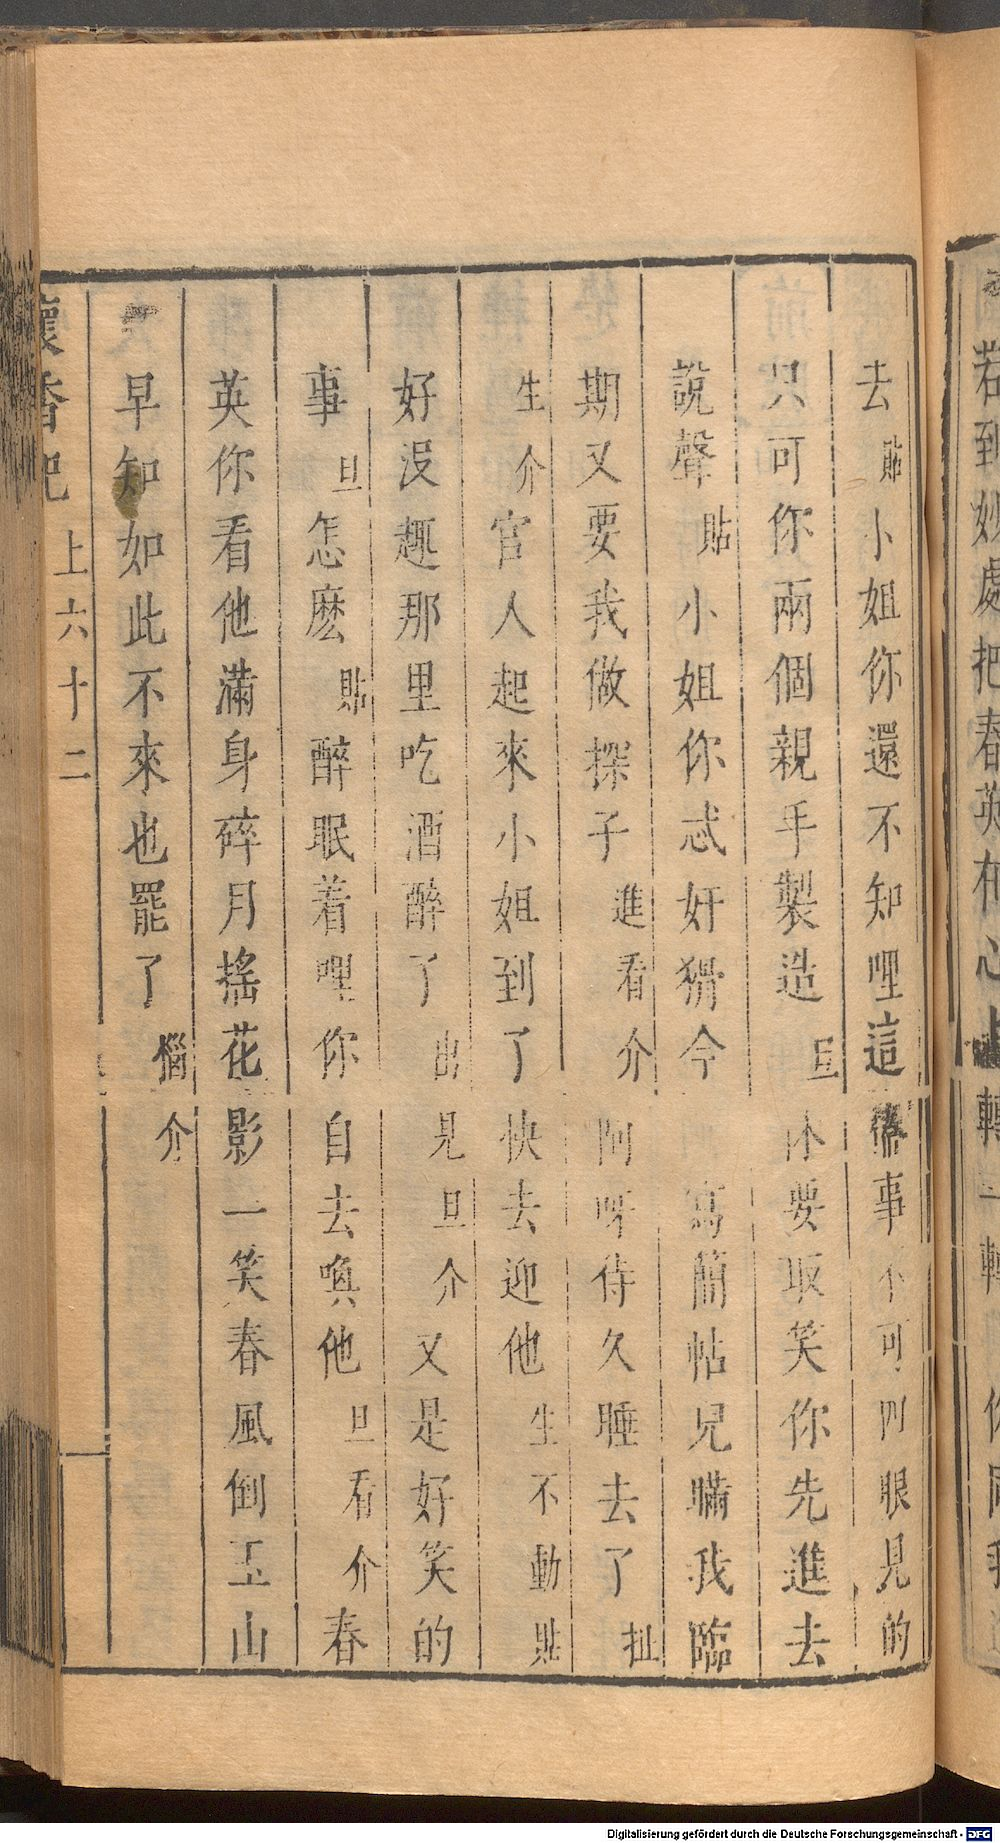 若到妙處把春英在心上轉一轉 你同我
去貼小姐你還不知哩這事不可四眼見的
只可你兩個親手製造旦休要取笑你先進去
說聲貼小姐你忒奸猾今寫簡帖兒瞞我臨
期又要我做探子進看介阿呀待久睡去了扯
生介官人起來小姐到了快去迎他生不動貼
好没趣那里吃酒醉了出見旦介又是好笑的
事旦怎麽貼醉眠着哩你自去喚他旦看介春
英你看他滿身碎月搖花影一笑春風倒玉山
早知如此不來也罷了惱介
懷香記 上六十二
Digitalisierung gefördert durch die Deutsche Forschungsgemeinschaft - DFG